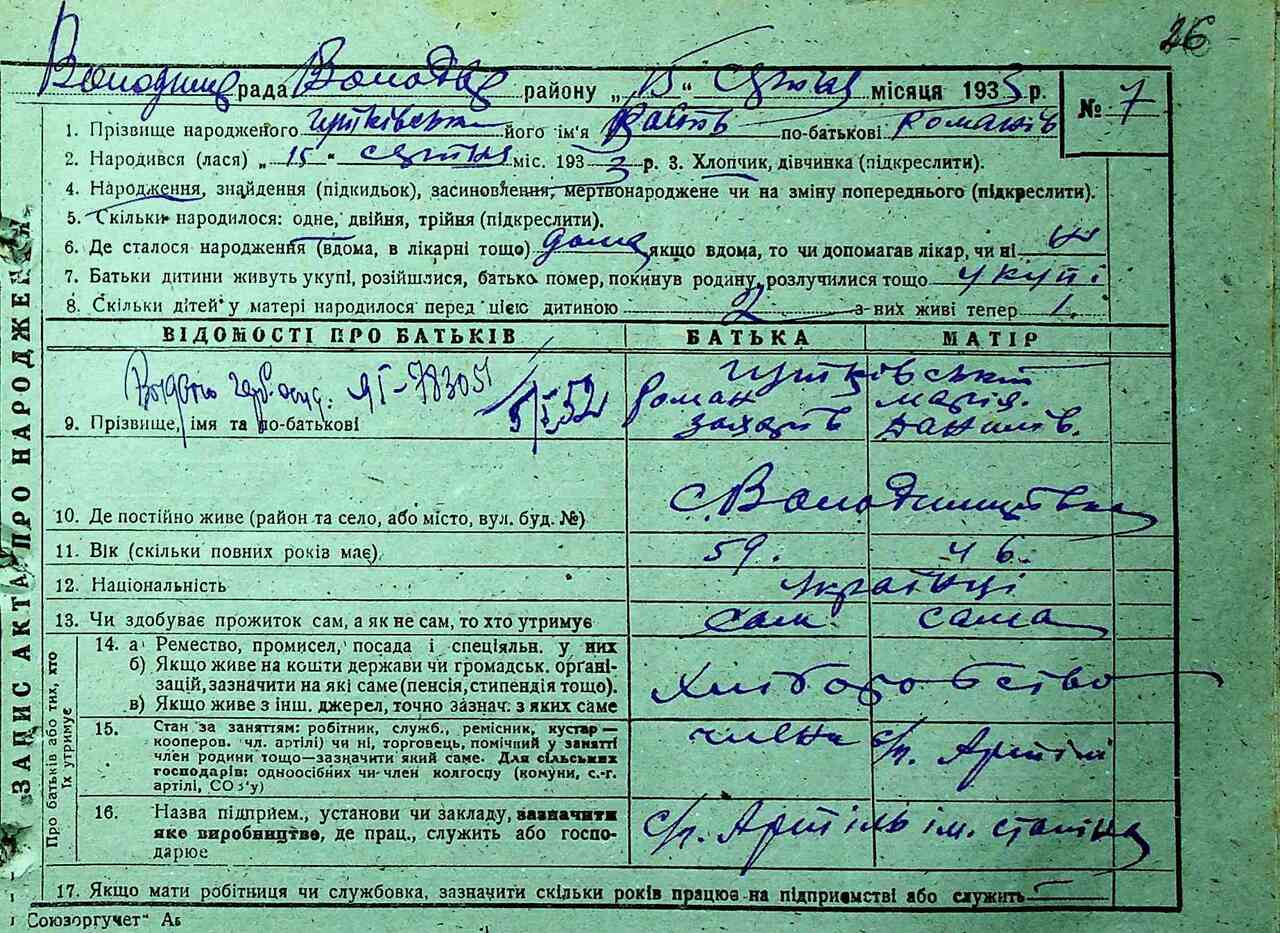 26
рада району „15“ місяця 1933 р. № 7
1. Прізвище народженого його ім'я по-батькові Романів
2. Народився (лася) „15“ міс. 1933 р. 3. Хлопчик, дівчинка (підкреслити).
4. Народження, знайдення (підкидьок), засиновлення, мертвонароджене чи на зміну попереднього (підкреслити).
5. Скільки народилося: одне, двійня, трійня (підкреслити).
6. Де сталося народження (вдома, в лікарні тощо) дома якщо вдома, то чи допомагав лікар, чи ні
7. Батьки дитини живуть укупі, розійшлися, батько помер, покинув родину, розлучилися тощо укупі
8. Скільки дітей у матері народилося перед цією дитиною 2 з них живі тепер 1.
ВІДОМОСТІ ПРО БАТЬКІВ БАТЬКА МАТІР
ЯГ-783051
52
Роман Марія.
9. Прізвище, імя та по-батькові Захарів Данилів.
10. Де постійно живе (район та село, або місто, вул. буд. №)
11. Вік (скільки повних років має) 59. 46.
12. Національність Українці
13. Чи здобуває прожиток сам, а як не сам, то хто утримує сам сама
14. а) Ремество, промисел, посада і спеціяльн. у них
б) Якщо живе на кошти держави чи громадськ. органі-
зацій, зазначити на які саме (пенсія, стипендія тощо).
в) Якщо живе з інш. джерел, точно зазнач. з яких саме
Хліборобство
15. Стан за заняттям: робітник, служб., ремісник, кустар—
кооперов. чл. артілі) чи ні, торговець, помічний у занятті
член родини тощо—зазначити який саме. Для сільських
господарів: одноосібних чи член колгоспу (комуни, с.-г.
артілі, СОЗ'у)
члени Артілі
16. Назва підприєм., установи чи закладу, зазначити
яке виробництво, де прац., служить або госпо-
дарює
Артіль ім. Сталіна
17. Якщо мати робітниця чи службовка, зазначити скільки років працює на підприємстві або служить —
ЗАПИС АКТА ПРО НАРОДЖЕННЯ
Про батьків або тих, хто
їх утримує
Союзоргучет“